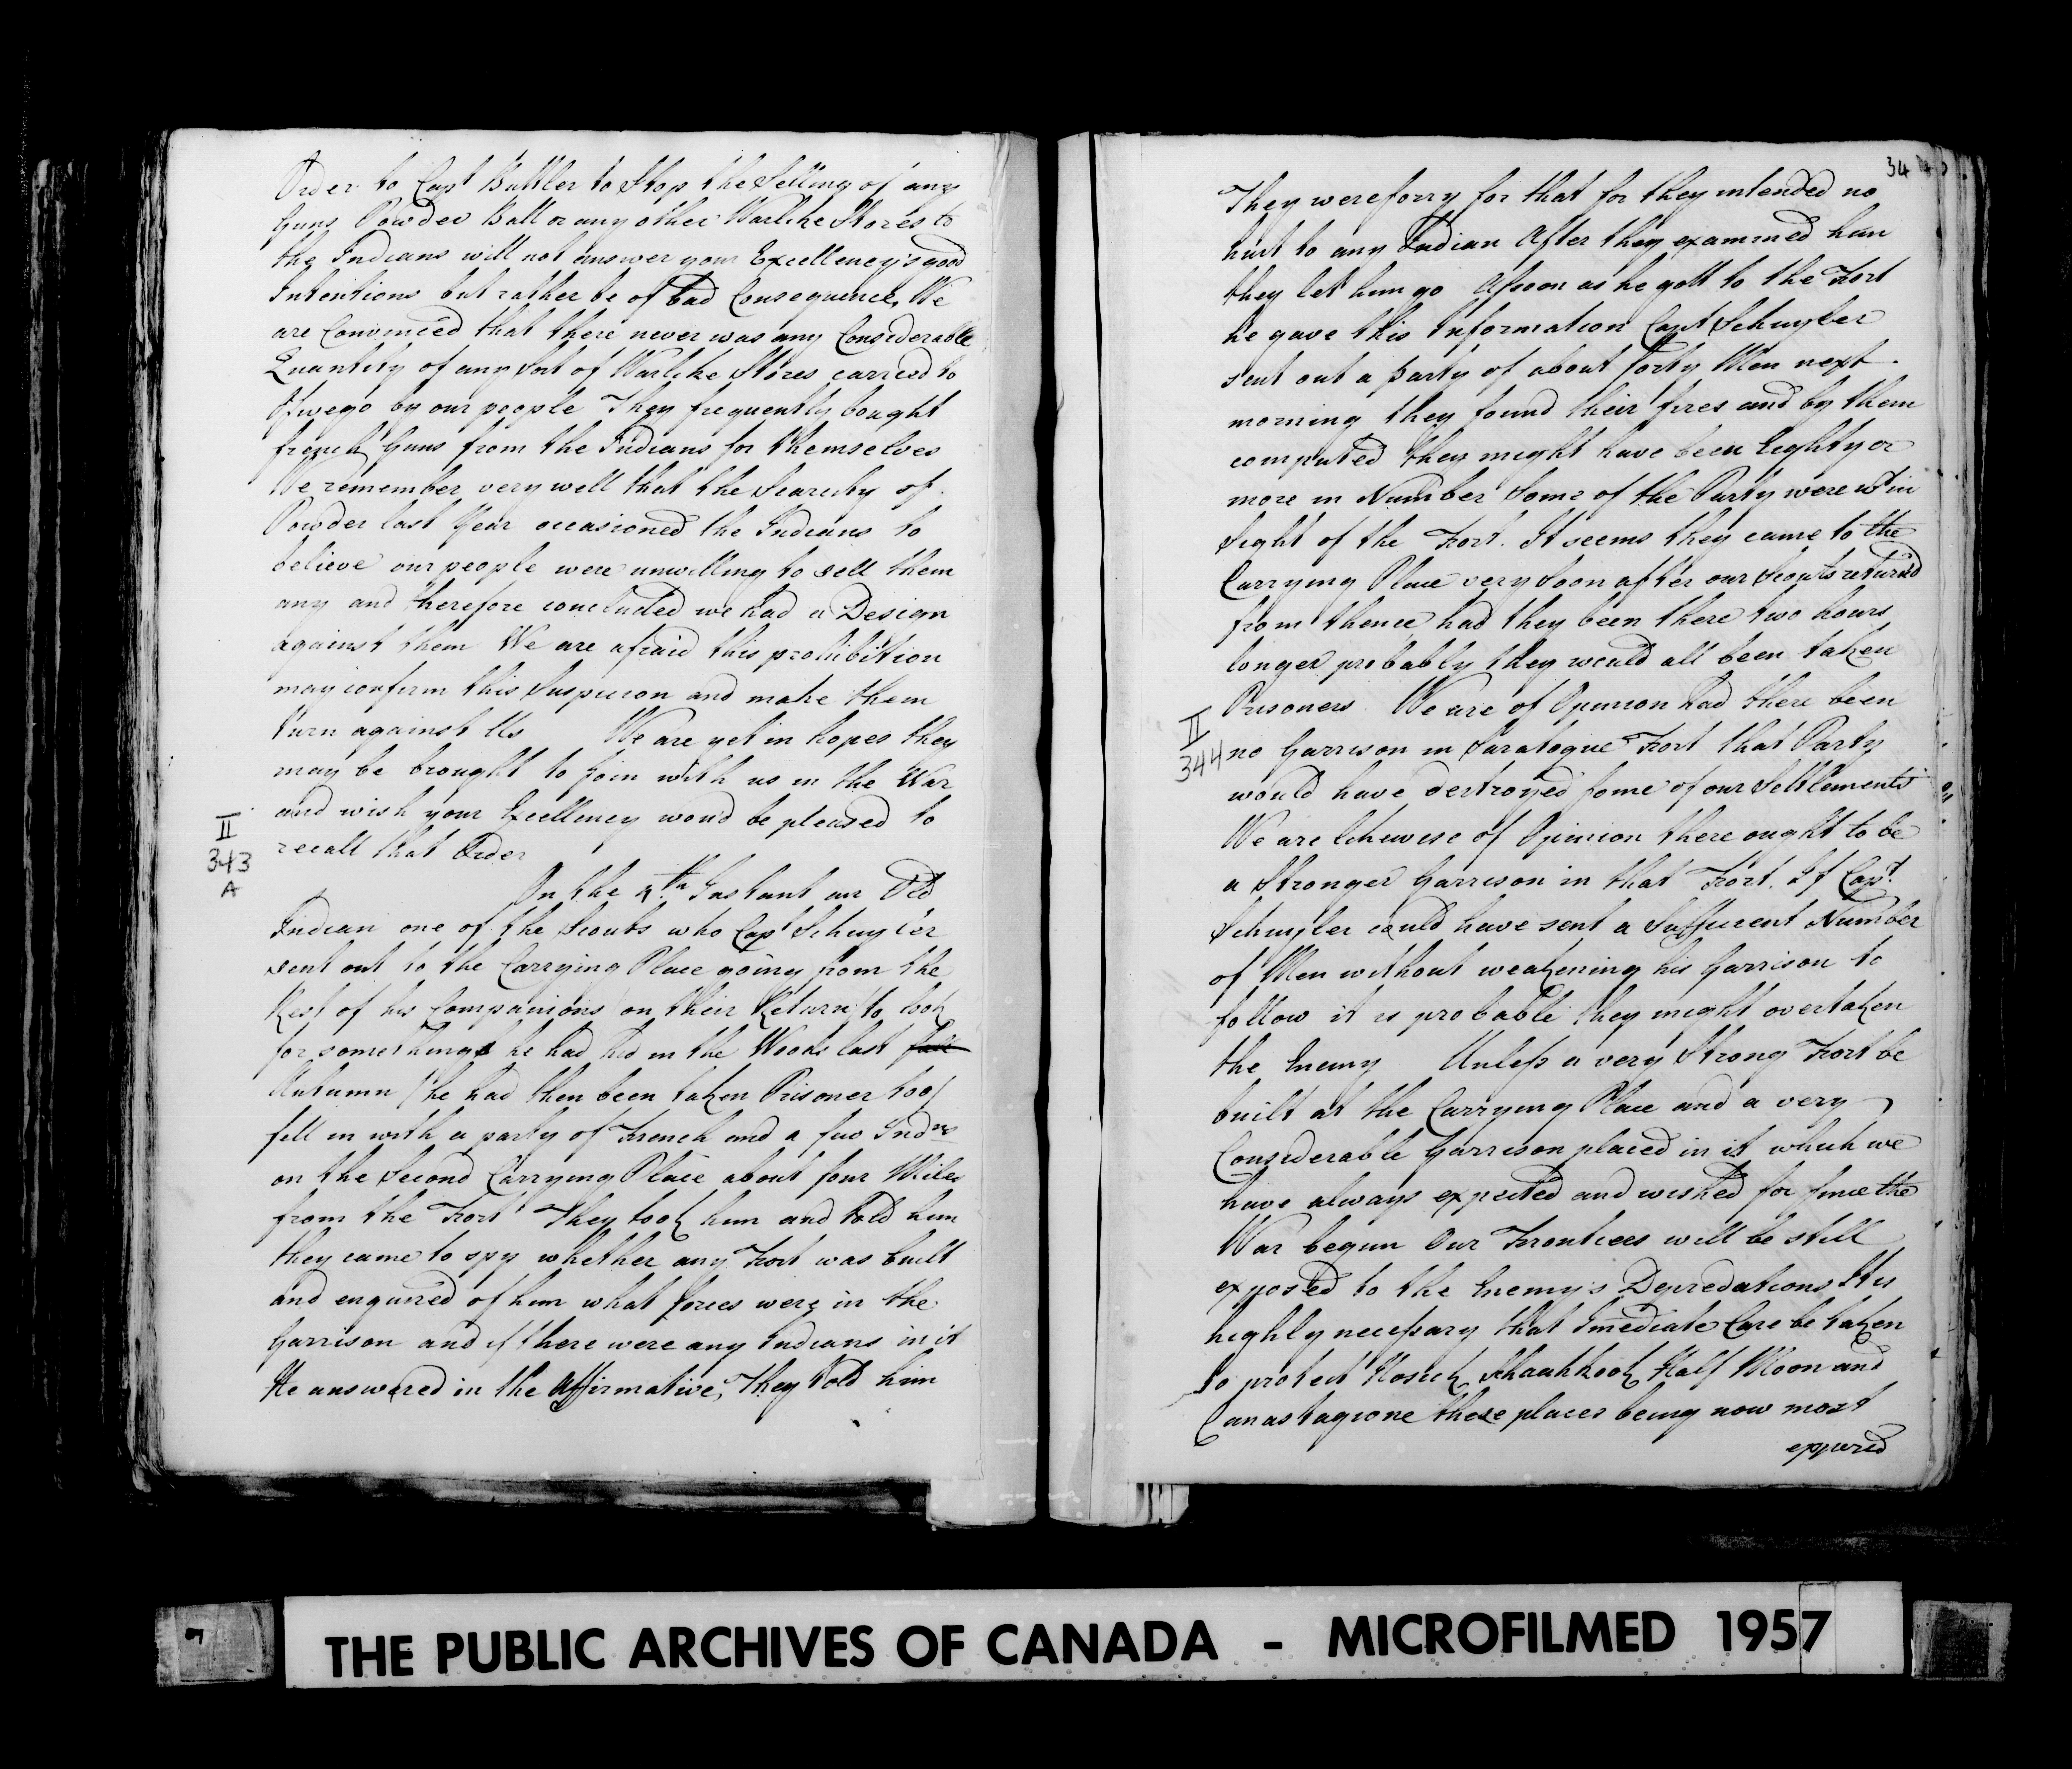 Order to Capt Buttler to Stop the Selling of any
Guns Powder Ball or any other Warlike Stores to
the Indians will not answer your Excellency's good
Intentions but rather be of bad Consequence, We
are Convinced that there never was any Considerable
Quantity of any Sort of Warlike Stores carried to
Oswego by our people They frequently bought
french Guns from the Indians for themselves
We remember very well that the Scarcity of
Powder last Year occasioned the Indians to
believe our people were unwilling to sell them
any and therefore concluded we had a Design
against them We are afraid this prohibition
may confirm this Suspicion and make them
turn against Us We are yet in hopes they
may be brought to join with us in the War
and wish your Excellency wou'd be pleased to
recall that Order
II
343
A
On the 4th Instant an Old
Indian one of the Scouts who Capt Schuyler
sent out to the Carrying Place going from the
Rest of his Companions on their Return to look
for somethings he had hid in the Woods last fall
Autumn (he had then been taken Prisoner too)
fell in with a party of French and a few Indns
on the Second Carrying Place about four Miles
from the Fort They took him and told him
they came to spy whether any Fort was built
and enquired of him what forces were in the
Garrison and if there were any Indians in it
He answered in the Affirmative, They told him
34
They were sorry for that for they intended no
hurt to any Indian After they examined him
they let him go Assoon as he gott to the Fort
he gave this Information Capt Schuyler
sent out a party of about forty Men next
morning they found their fires and by them
computed they might have been Eighty or
more in Number Some of the Party were wt in
Sight of the Fort. It seems they came to the
Carrying Place very Soon after our Scouts return'd
from thence had they been there two hours
longer probably they would all been taken
Prisoners We are of Opinion had there been
II
344
no Garrison in Saratogue Fort that Party
would have destroyed some of our Settlements
We are likewise of Opinion there ought to be
a Stronger Garrison in that Fort. If Capt
Schuyler could have sent a Sufficient Number
of Men without weakening his Garrison to
follow it is probable they might overtaken
the Enemy Unless a very Strong Fort be
built at the Carrying Place and a very
Considerable Garrison placed in it which we
have always expected and wished for since the
War begun Our Frontiers will be still
exposed to the Enemy's Depredations It is
highly necessary that Imediate Care be taken
to protect Hosick Skaahkook Half Moon and
Canastagione these places being now most
exposed
THE PUBLIC ARCHIVES OF CANADA - MICROFILMED 1957